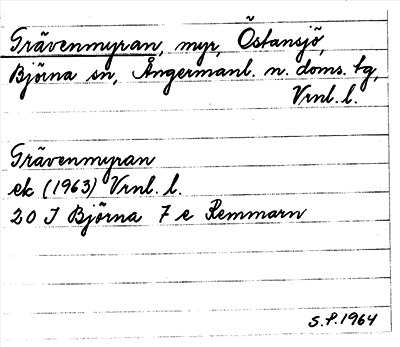 Grävenmyran, myr, Östansjö,
Björna sn, Ångermanl. n. doms. tg,
Vrnl. l.
Grävenmyran
ek (1963) Vrnl. l.
20 J Björna 7 e Remmarn
S.P. 1964